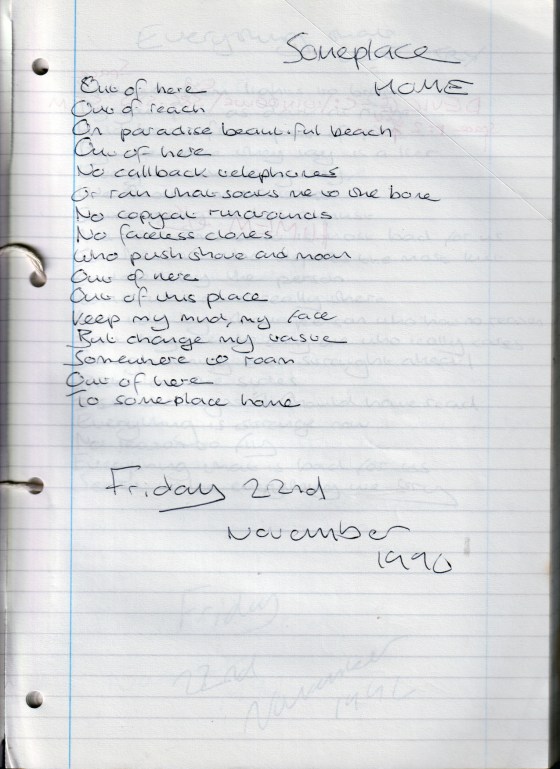 Someplace
HOME
Out of here
Out of reach
On paradise beautiful beach
Out of here
No callback telephones
Or rain that soaks me to the bone
No copycat runarounds
No faceless clones
Who push shove and moan
Out of here
Out of this place
Keep my mind, my face
But change my taste
Somewhere to roam
Out of here
To someplace home
Friday 22nd
November
1996